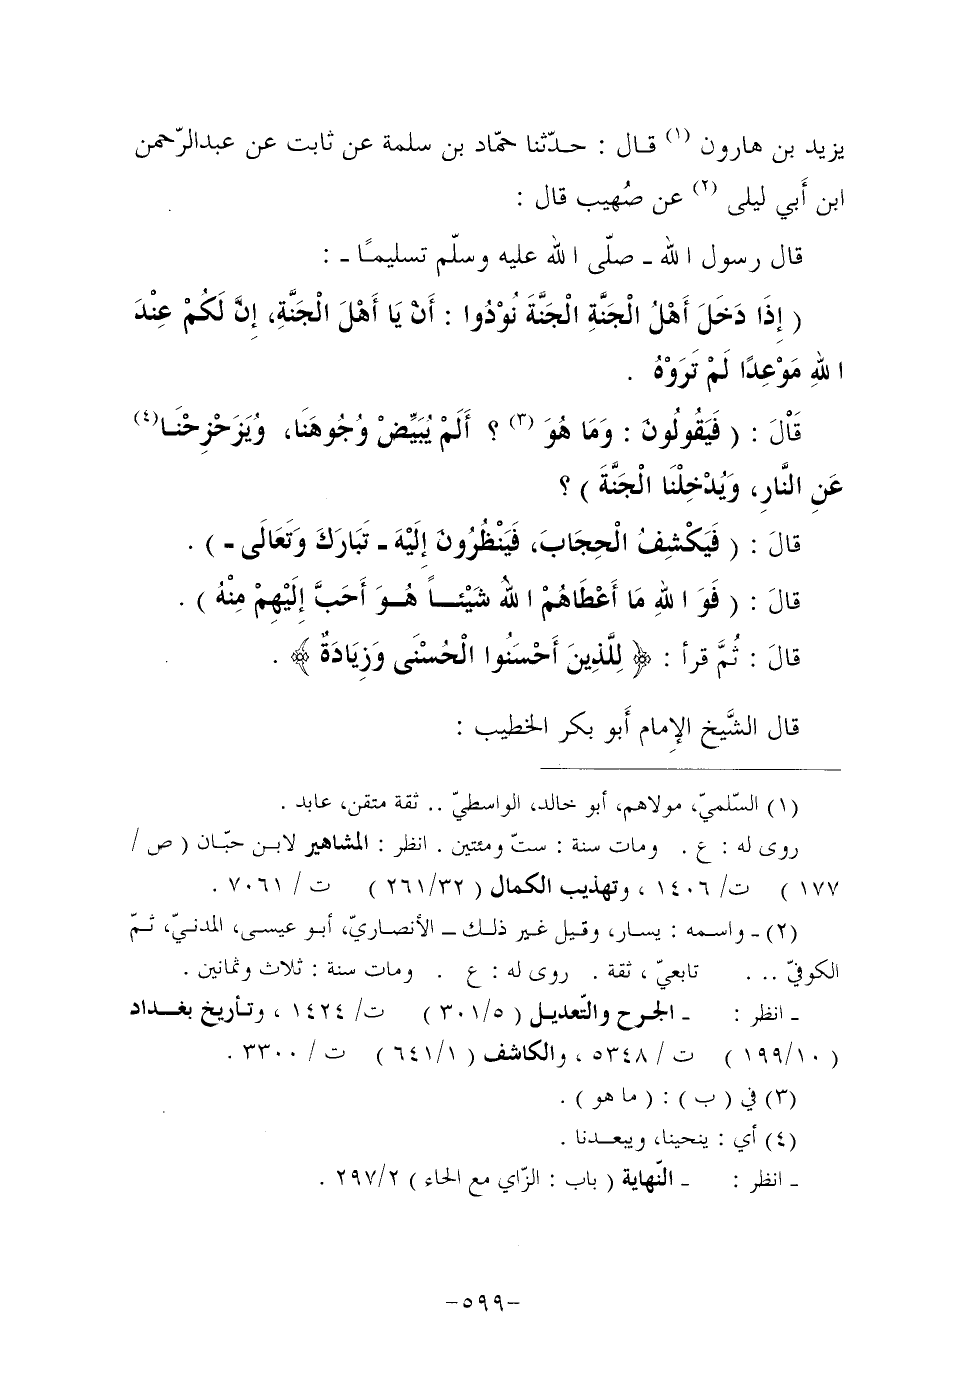 يزيد بن هارون (١) قال : حدّثنا حمّاد بن سلمة عن ثابت عن عبدالرّحمن
ابن أَبي ليلى (٢) عن صُهيب قال :
قال رسول الله ـ صلّى الله عليه وسلّم تسليمًا ـ :
( إِذَا دَخَلَ أَهْلُ الْجَنَّةِ الْجَنَّةَ نُوْدُوا : أَنْ يَا أَهْلَ الْجَنَّةِ، إِنَّ لَكُمْ عِنْدَ
اللهِ مَوْعِدًا لَمْ تَرَوْهُ .
قَاْلَ : ( فَيَقُولُونَ : وَمَا هُوَ (٣) ؟ أَلَمْ يُبَيِّضْ وُجُوهَنَا، وَيُزَحْزِحْنَا(٤)
عَنِ النَّارِ، وَيُدْخِلْنَا الْجَنَّةَ ) ؟
قالَ : ( فَيَكْشِفُ الْحِجَابَ، فَيَنْظُرُونَ إِلَيْهَ ـ تَبَارَكَ وَتَعَالَى ـ ) .
قالَ : ( فَوَاللهِ مَا أَعْطَاهُمْ اللهُ شَيْئاً هُوَ أَحَبَّ إِلَيْهِمْ مِنْهُ ) .
قالَ : ثُمَّ قرأ : ﴿ لِلَّذِينَ أَحْسَنُوا الْحُسْنَى وَزِيَادَةٌ ﴾ .
قال الشَّيخ الإِمام أَبو بكر الخطيب :
(١) السّلميّ، مولاهم، أبو خالد، الواسطيّ .. ثقة متقن، عابد .
روى له : ع . ومات سنة : ستّ ومئتين . انظر : المشاهير لابن حبّان ( ص /
١٧٧ ) ت/ ١٤٠٦ ، وتهذيب الكمال ( ٣٢/ ٢٦١ ) ت / ٧٠٦١ .
(٢)ـ واسمه : يسار، وقيل غير ذلك ـ الأنصاريّ، أبو عيسى، المدنيّ، ثمّ
الكوفيّ ... . تابعيّ ، ثقة . روى له : ع . ومات سنة : ثلاث وثمانين .
ـ انظر : ـ الجرح والتّعديل ( ٥/ ٣٠١ ) ت/ ١٤٢٤ ، وتأريخ بغداد
( ١٠/ ١٩٩ ) ت / ٥٣٤٨ ، والكاشف ( ١/ ٦٤١ ) ت / ٣٣٠٠ .
(٣) في ( ب ) : ( ما هو ) .
(٤) أي : ينحينا، ويبعدنا .
ـ انظر : ـ النّهاية ( باب : الزّاي مع الحاء ) ٢/ ٢٩٧ .
-٥٩٩-